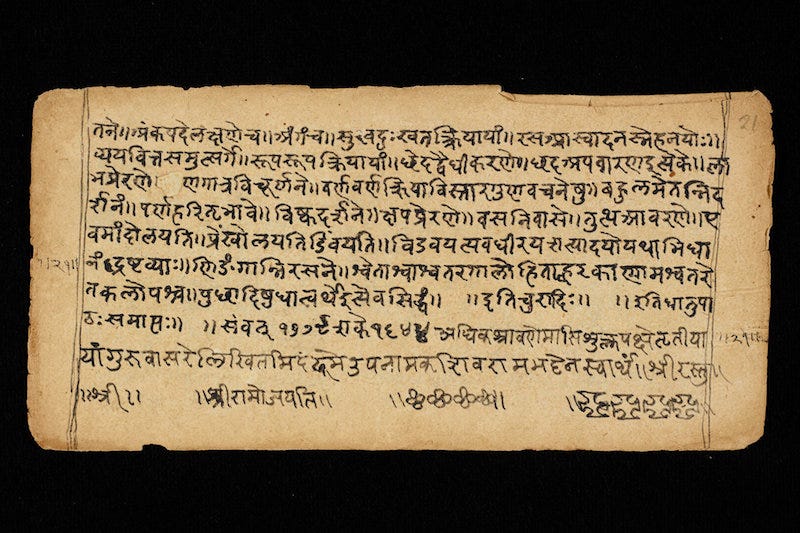 तने॥अंकपदेलक्षणेच॥अंगंच॥सुखदुःखतत्क्रियायां॥रसआस्वादनस्नेहनयोः॥
व्ययवित्तसमुत्सर्गे॥रूपरूपक्रियायां॥छेदद्वैधीकरणे॥छदअपवारणइत्येके॥ला
भप्रेरणे॥ व्रणगात्रविचूर्णने॥वर्णवर्णक्रियाविस्तारगुणवचनेषु॥बहुलमेतन्निद
र्शनं॥पर्णहरितभावे॥विष्कदर्शने॥क्षपप्रेरणे॥वसनिवासे॥तुत्थआवरणे॥ए
वमांदोलयति॥प्रेंखोलयतिविडंबयति॥अवधीरयतीत्यादयोयथाभिधा
नंद्रष्टव्याः॥णिङंगान्निरसने॥श्वेताश्वाश्वतरगालोडिताह्वरकाणामश्वतरे
तकलोपश्च॥पुछादिषुधात्वर्थइत्येवसिद्धं॥ ॥इतिचुरादिः॥ ॥इतिधातुपा
ठः समाप्तः॥ ॥संवत् शके अधिकश्रावणेमासिशुक्लपक्षेतृतीया
यांगुरुवासरेलिखितमिदं स्वार्थं॥श्रीरस्तु॥
॥श्री॥ ॥श्रीरामोजयति॥
21
॥२१॥
॥२१॥